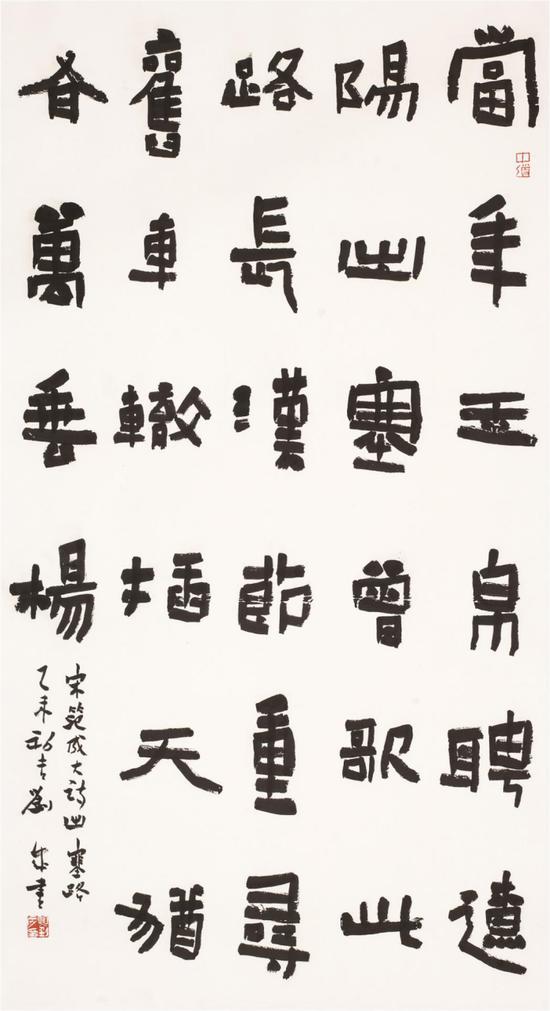 當年玉帛聘遼
陽出塞曾歌此
路長漢節重尋
舊車轍插天猶
有萬垂楊
宋范成大詩出塞路
乙未初吉劉書